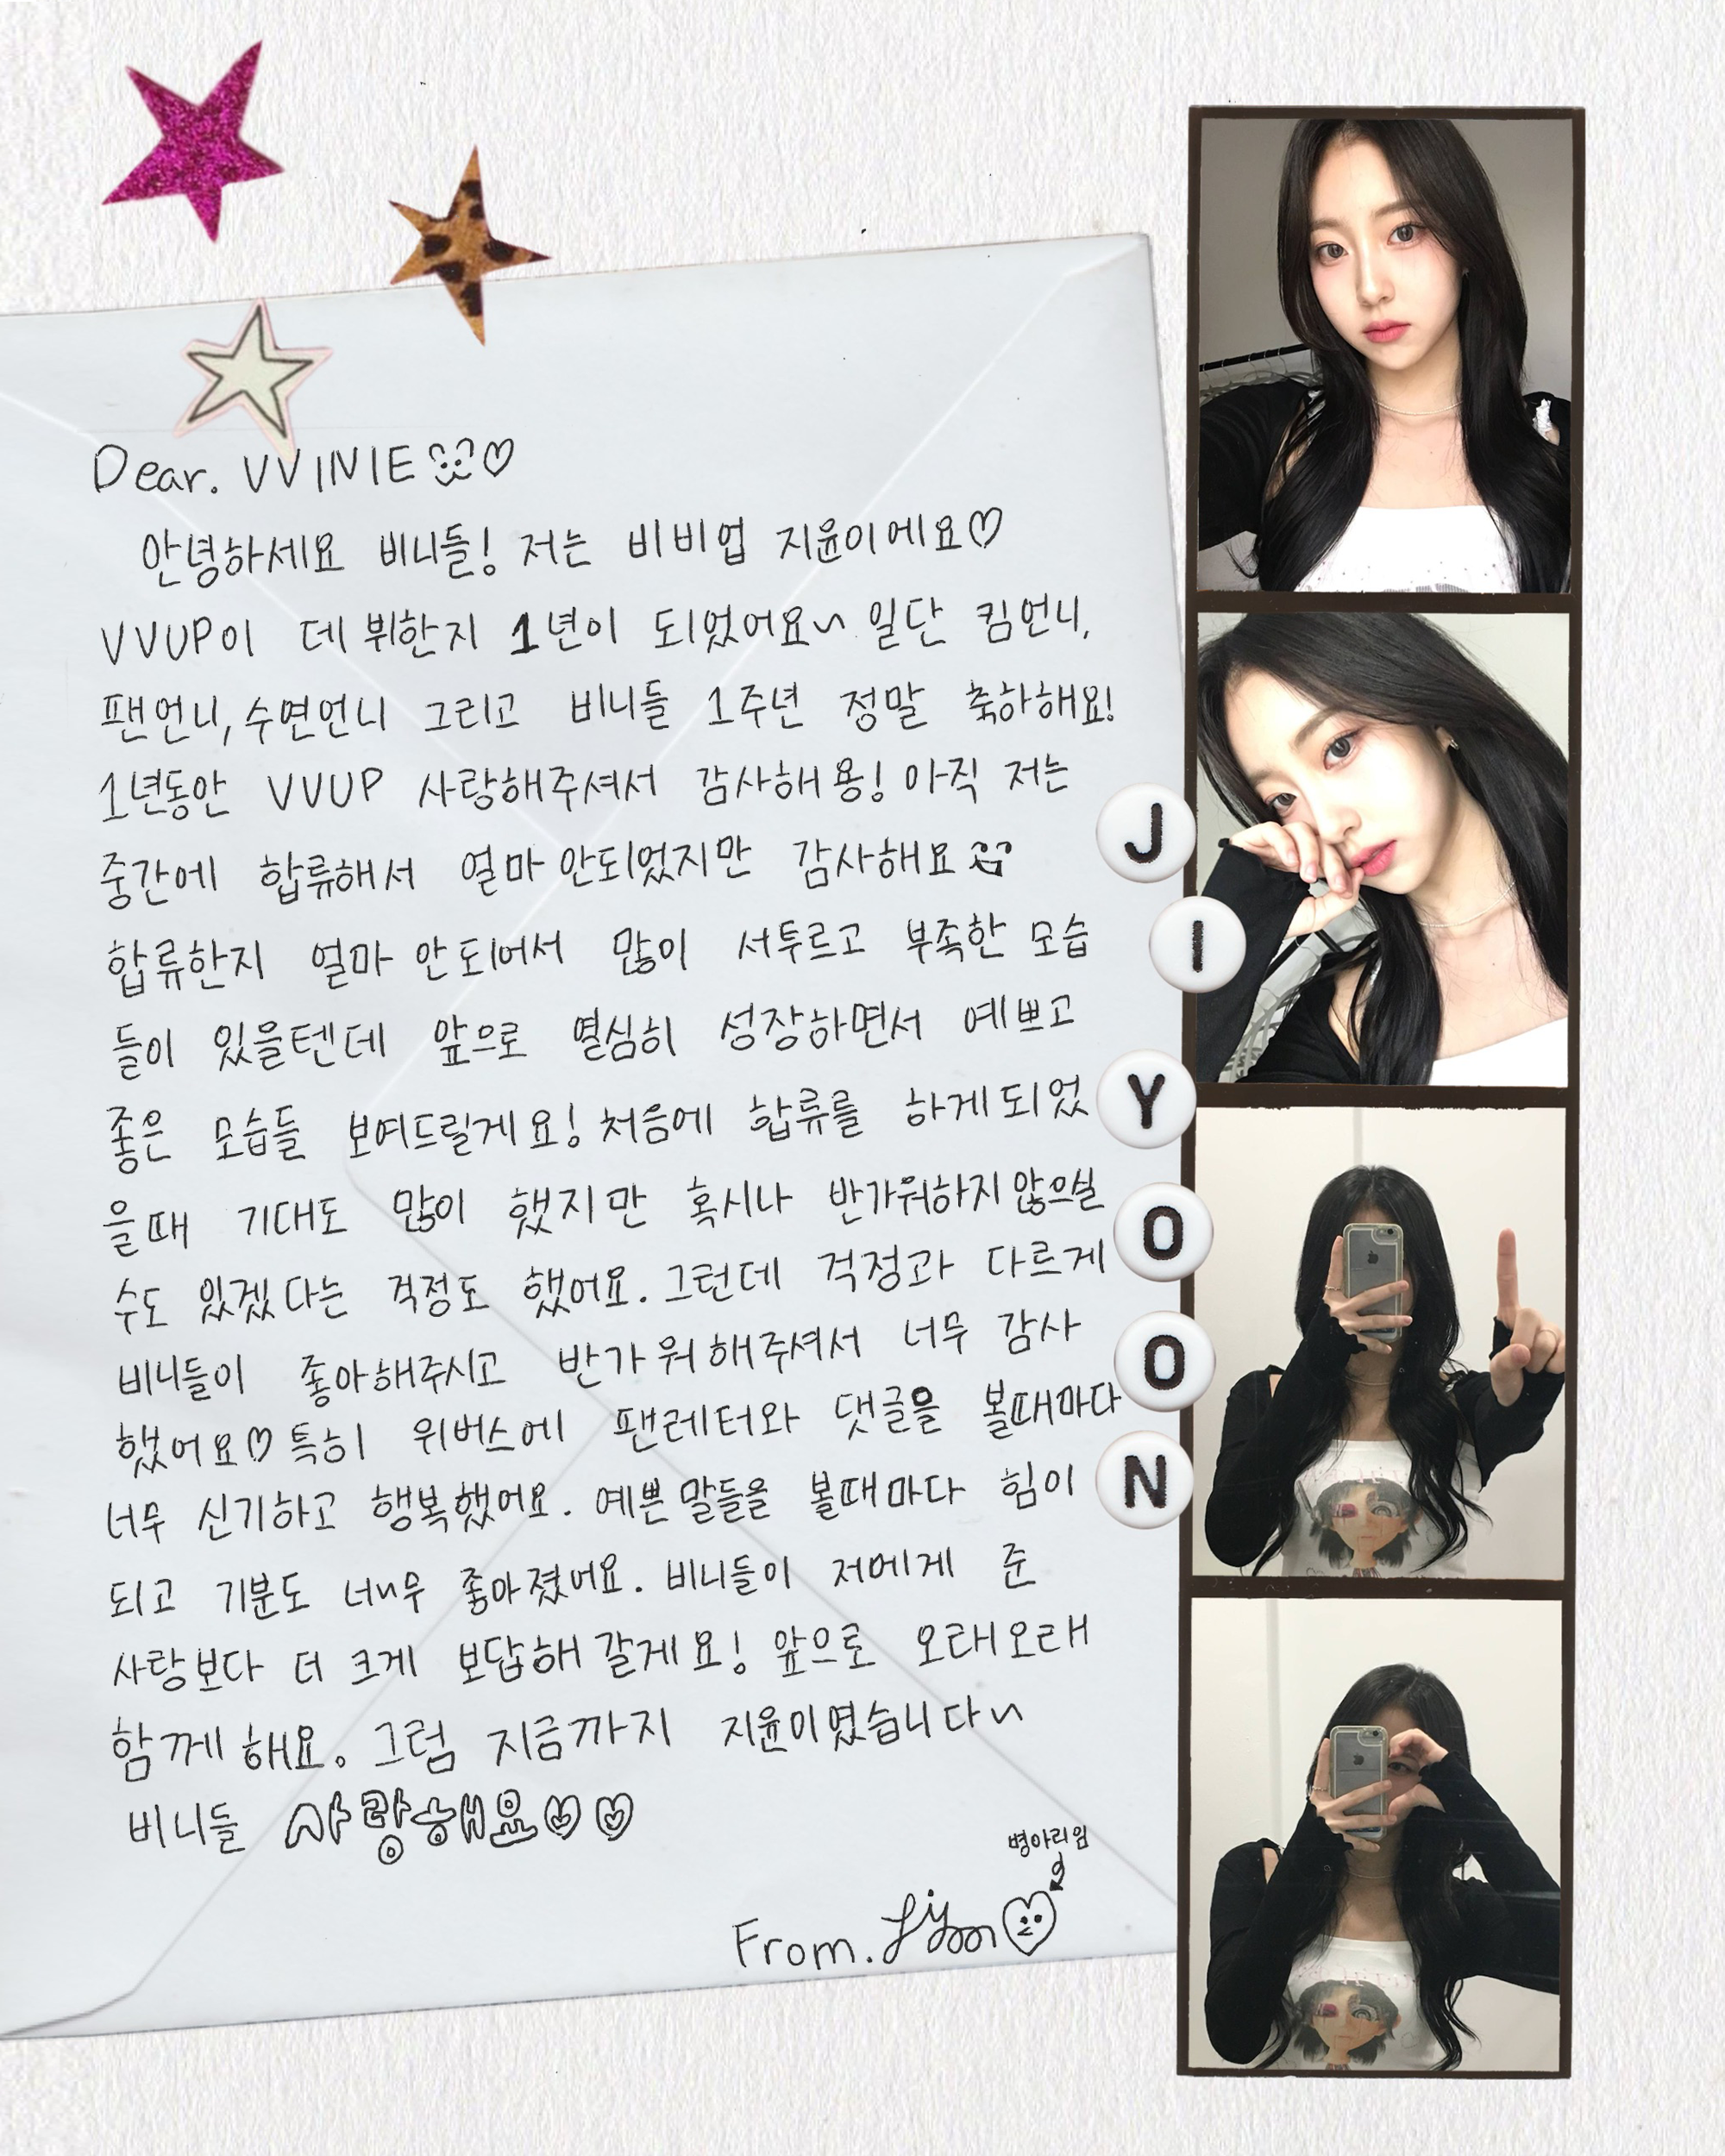 Dear. VVINIE
안녕하세요 비니들! 저는 비비업 지윤이에요♡
VVUP이 데뷔한지 1년이 되었어요~ 일단 킴언니,
팬언니, 수연언니 그리고 비니들 1주년 정말 축하해요!
1년동안 VVUP 사랑해주셔서 감사해용! 아직 저는
중간에 합류해서 얼마 안되었지만 감사해요
합류한지 얼마 안되어서 많이 서투르고 부족한 모습
들이 있을텐데 앞으로 열심히 성장하면서 예쁘고
좋은 모습들 보여드릴게요! 처음에 합류를 하게되었
을때 기대도 많이 했지만 혹시나 반가워하지 않으실
수도 있겠다는 걱정도 했어요. 그런데 걱정과 다르게
비니들이 좋아해주시고 반가워해주셔서 너무 감사
했어요♡ 특히 위버스에 팬레터와 댓글을 볼때마다
너무 신기하고 행복했어요. 예쁜 말들을 볼때마다 힘이
되고 기분도 너~무 좋아졌어요. 비니들이 저에게 준
사랑보다 더 크게 보답해 갈게요! 앞으로 오래오래
함께해요. 그럼 지금까지 지윤이였습니다~
비니들 사랑해요♡♡
병아리임
From. Jiyoon
JIYOON